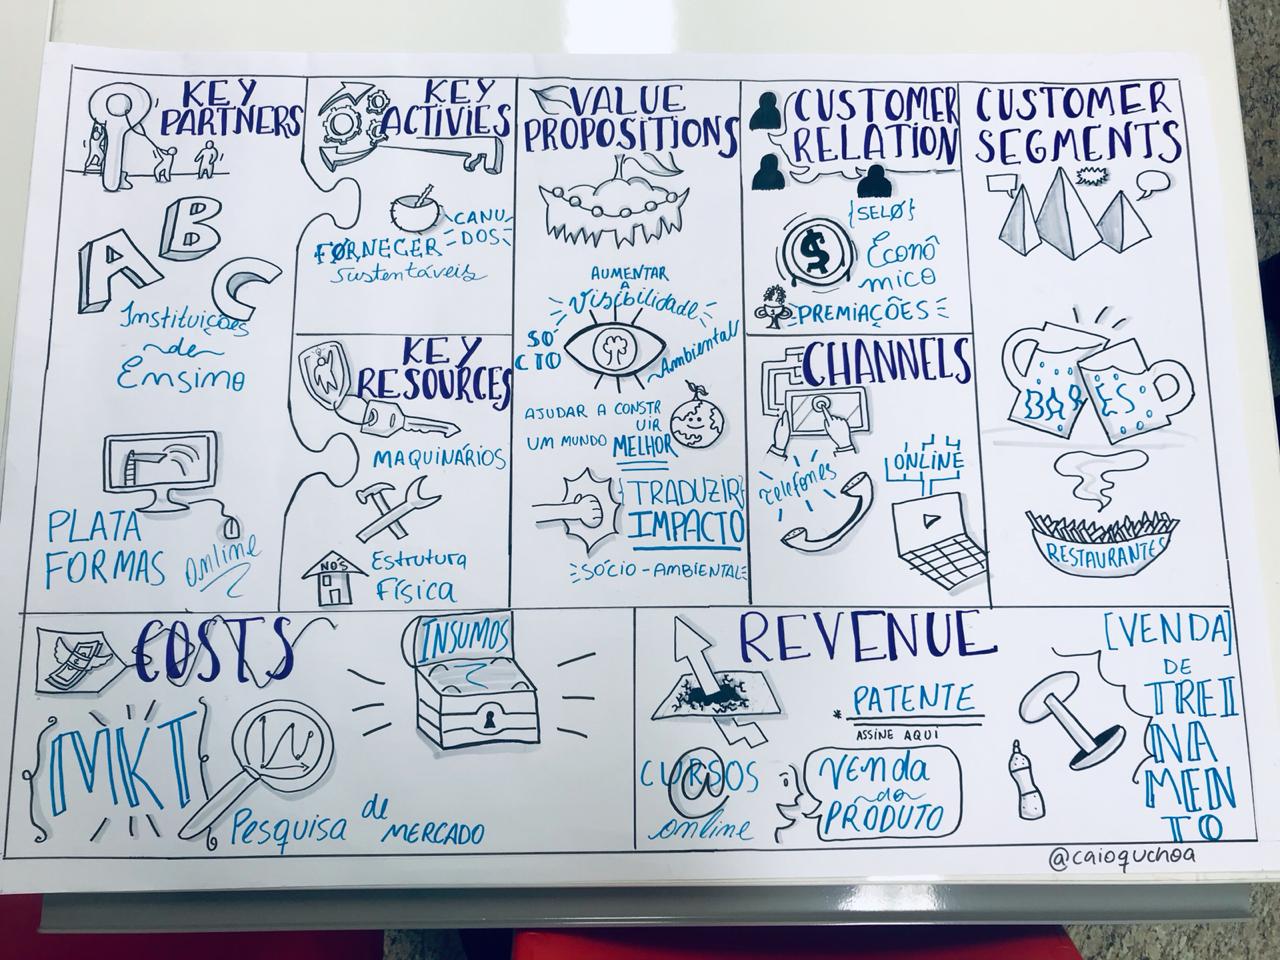 KEY
PARTNERS
A B C
Instituições
de
Ensino
PLATA
FORMAS
Online
KEY
ACTIVIES
CANU
DOS
FORNECER
Sustentáveis
KEY
RESOURCES
MAQUINÁRIOS
NOS
Estrutura
Física
VALUE
PROPOSITIONS
AUMENTAR
A
Visibilidade
SÓ
CIO
Ambiental
AJUDAR A CONSTR
UIR
UM MUNDO MELHOR
TRADUZIR
IMPACTO
SÓCIO-AMBIENTAL
CUSTOMER
RELATION
{SELO}
$
Econô
mico
PREMIAÇÕES
CHANNELS
Telefones
ONLINE
CUSTOMER
SEGMENTS
BARES
RESTAURANTES
COSTS
INSUMOS
MKT
Pesquisa de MERCADO
REVENUE
* PATENTE
ASSINE AQUI
@
CURSOS
online
Venda
do
PRODUTO
[VENDA]
DE
TREI
NA
MEN
TO
@caioquchoa